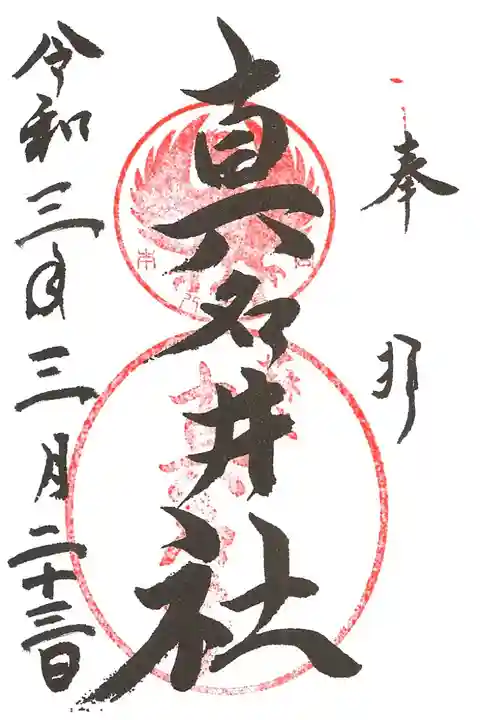 奉拝
真名井社
令和三年三月二十三日